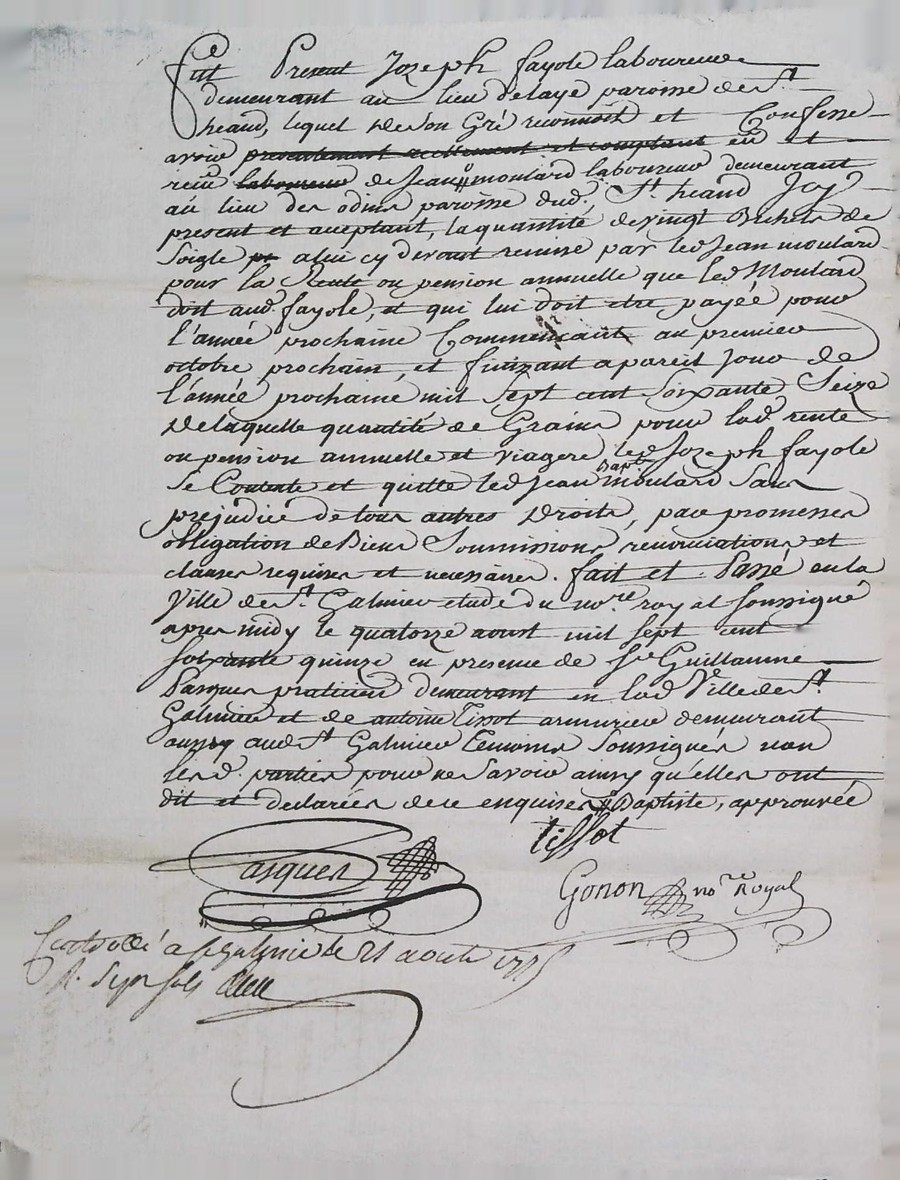 fut Present Joseph fayole laboureur
demeurant au lieu delaye paroisse de St
heand, lequel de son Gré reconnoit et Confesse
avoir presentement reellement et comptant eu et
recu laboureur de Jean # moulard laboureur demeurant
au lieu des odins paroisse dud. St. heand Icy
present et aceptant, la quantité de vingt Bichets de
Soigle a lui cy devant remise par led Jean moulard
pour la Rente ou pension annuelle que led Moulard
doit aud. fayole, et qui lui doit etre payée pour
l'année prochaine Commencant au premier
octobre prochain, et finissant a pareil Jour de
l'année prochaine mil Sept cent Soixante Seize
De laquelle quantité de Grains pour lad rente
ou pension annuelle et viagere, led Joseph fayole
Se Contente et quitte led Jean Bapt. moulard Sans
prejudice de tous autres Droits, par promesses
obligation de Biens Soumissions renonciations et
clauses requises et necessaires. fait et Passé en la
Ville de St. Galmier etude du nore. royal soussigné
apres midy le quatorze aoust mil sept cent
soixante quinze en presence de Sr Guillaume
Pasques praticien demeurant en lad Ville de St.
Galmier et de antoine Tissot armurier demeurant
aussy aud St Galmier Temoins Soussignés non
lesd. parties pour ne Savoir ainsy qu'elles ont
dit et declarées de ce enquises # Baptiste, approuvée
tissot
Pasques
Gonon nore Royal
Controllé a St Galmier le 21 aoust 1775
R. Sept sols